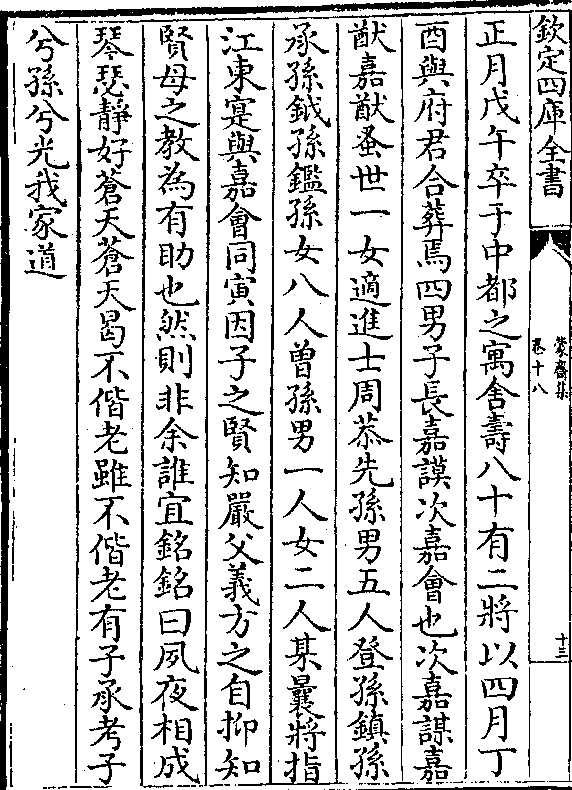 欽定四庫全書
蒙齋集
卷十八
十三
正月戊午卒于中都之寓舍壽八十有二將以四月丁
酉與府君合葬焉四男子長嘉謨次嘉會也次嘉謀嘉
猷嘉猷蚤世一女適進士周恭先孫男五人登孫鎮孫
承孫鉞孫鑑孫女八人曾孫男一人女二人某曩將指
江東寔與嘉會同寅因子之賢知嚴父義方之自抑知
賢母之教為有助也然則非余誰宜銘銘曰夙夜相成
琴瑟靜好蒼天蒼天曷不偕老雖不偕老有子承考子
兮孫兮光我家道